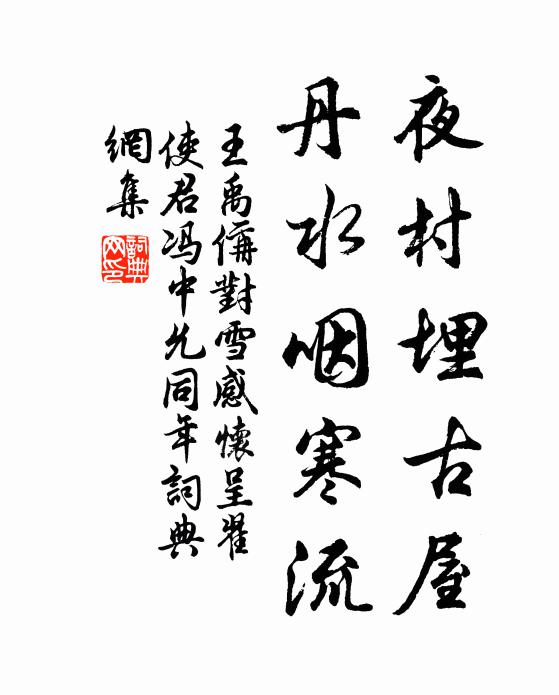 夜村埋古屋
丹水咽寒流
王禹偁對雪感懷呈翟
使君冯中允同年詞典
網集
詞典網印